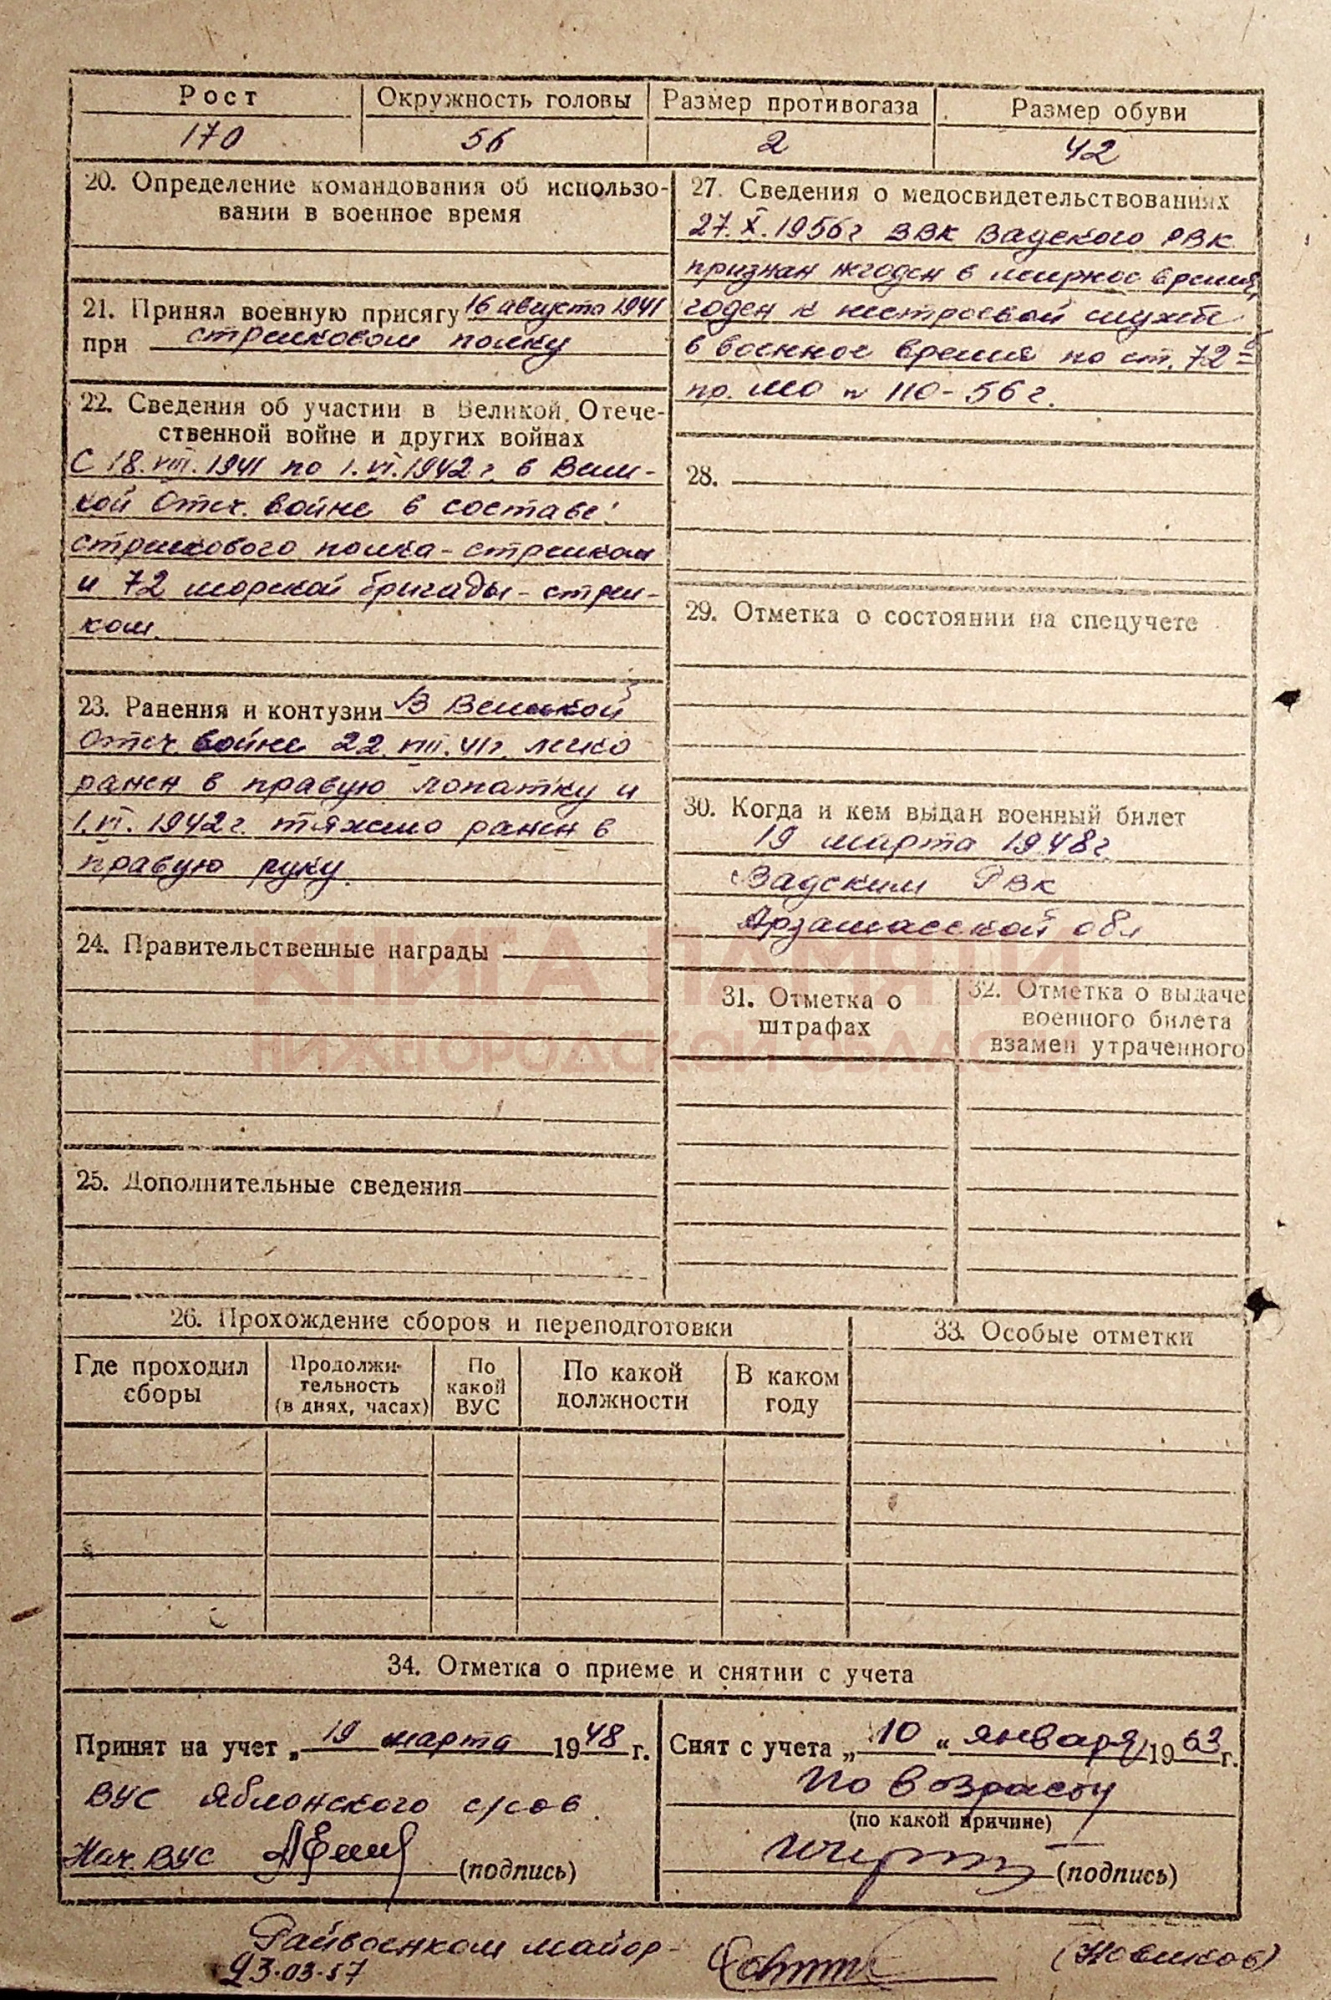 Рост Окружность головы Размер противогаза Размер обуви
170 56 2 42
20. Определение командования об использо-
вании в военное время
21. Принял военную присягу 16 августа 1941
при стрелковом полку
22. Сведения об участии в Великой Отече-
ственной войне и других войнах
С 18.VIII.1941 по 1.VI.1942 г. в Вели-
кой Отеч. войне в составе:
стрелкового полка - стрелком
и 72 морской бригады - стрел-
ком.
23. Ранения и контузии В Великой
Отеч. войне 22.VIII.41г. легко
ранен в правую лопатку и
1.VI.1942г. тяжело ранен в
правую руку.
24. Правительственные награды
25. Дополнительные сведения
27. Сведения о медосвидетельствованиях
27.X.1956г ВВК Вадского РВК
признан нгоден в мирное время,
годен к нестроевой службе
в военное время по ст. 72
пр. МО № 110-56г.
28.
29. Отметка о состоянии на спецучете
30. Когда и кем выдан военный билет
19 марта 1948г
Вадским РВК
Арзамасской обл
КНИГА ПАМЯТИ
НИЖЕГОРОДСКОЙ ОБЛАСТИ
31. Отметка о
штрафах
32. Отметка о выдаче
военного билета
взамен утраченного
26. Прохождение сборов и переподготовки
Где проходил
сборы
Продолжи-
тельность
(в днях, часах)
По
какой
ВУС
По какой
должности
В каком
году
33. Особые отметки
34. Отметка о приеме и снятии с учета
Принят на учет „ 19 марта 1948 г.
ВУС Яблонского с/сов.
Нач. ВУС (подпись)
Снят с учета „ 10 “ января 1963 г.
по возрасту
(по какой причине)
(подпись)
Райвоенком майор- (Новиков)
23.03.57